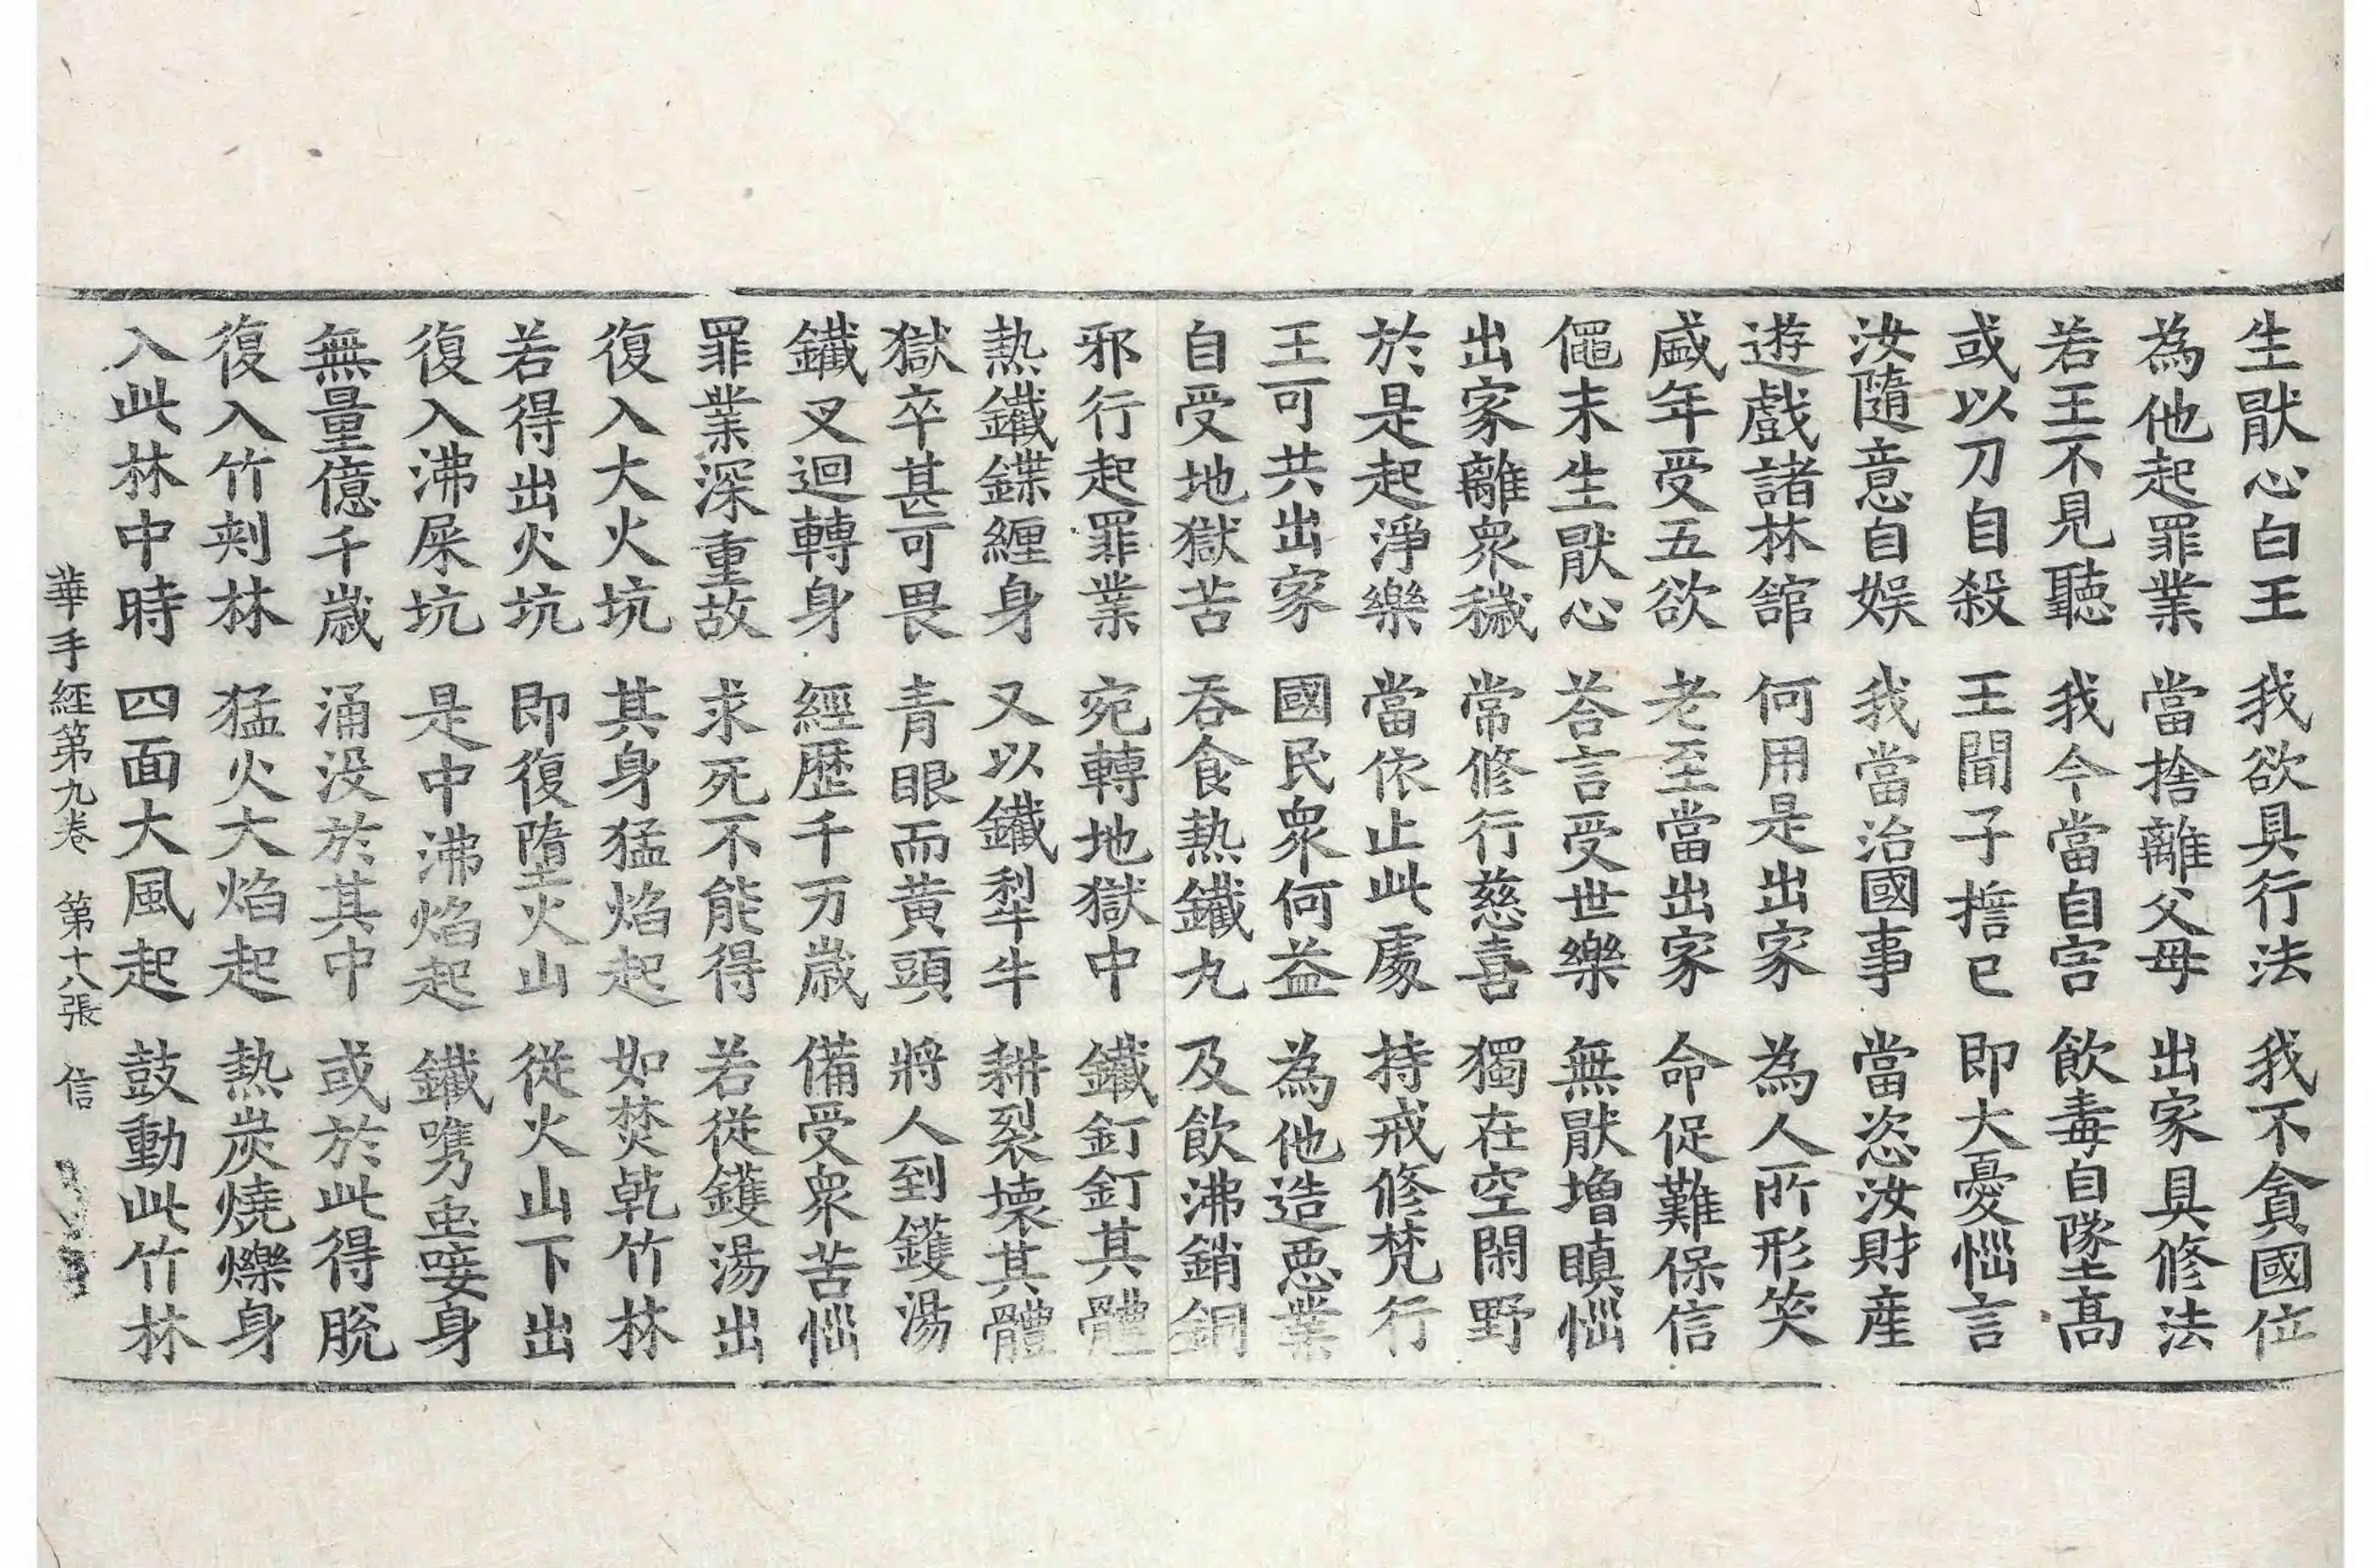 生猒心白王　我欲具行法　我不貪國位
為他起罪業　當捨離父母　出家具修法
若王不見聽　我今當自害　飲毒自墜髙
或以刀自殺　王聞子擔已　即大憂惱言
汝隨意自娛　我當治國事　當恣汝財産
遊戲諸林舘　何用是出家　為人所形笑
盛年受五欲　老至當出家　命促難保信
僶未生猒心　荅言受世樂　無猒增瞋惱
出家離衆穢　常修行慈喜　獨在空閑野
於是起淨樂　當依止此處　持戒修梵行
王可共出家　國民衆何益　為他造惡業
自受地獄苦　吞食熱鐵丸　及飲沸銷銅
邪行起罪業　宛轉地獄中　鐵釘釘其體
熱鐵鍱纏身　又以鐵犁牛　耕裂壞其體
獄卒甚可畏　青眼而黃頭　將人到鑊湯
鐵叉迴轉身　經歷千万歲　備受衆苦惱
罪業深重故　求死不能得　若從鑊湯出
復入大火坑　其身猛焰起　如焚乾竹林
若得出火坑　即復墮火山　從火山下出
復入沸屎坑　是中沸焰起　鐵嘴䖝唼身
無量億千歲　涌没於其中　或於此得脫
復入竹刺林　猛火大焰起　熱炭燒爍身
入此林中時　四面大風起　鼓動此竹林
華手經第九卷　第十八張　信